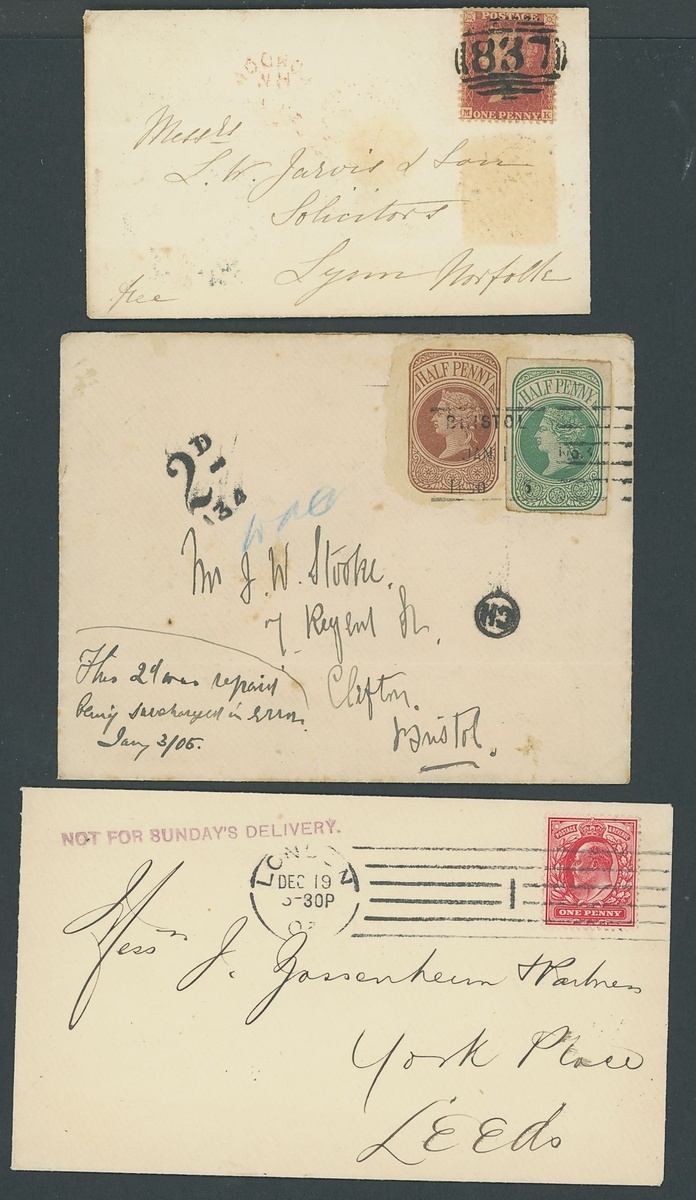 POSTAGE
837
M ONE PENNY K
Messrs
L. W. Jarvis & Son
Solicitors
Lynn Norfolk
free
HALF PENNY
HALF PENNY
BRISTOL
JAN 1
2D
134
Mr J. W. Stooke.
7 Regent St.
Clifton.
Bristol.
This 2d was repaid
being surcharged in error.
Jany 3/05.
NOT FOR SUNDAY'S DELIVERY.
LONDON
DEC 19
-30P
1
POSTAGE REVENUE
ONE PENNY
Messrs J. Gossenheim & Partners
York Place
LEEDS